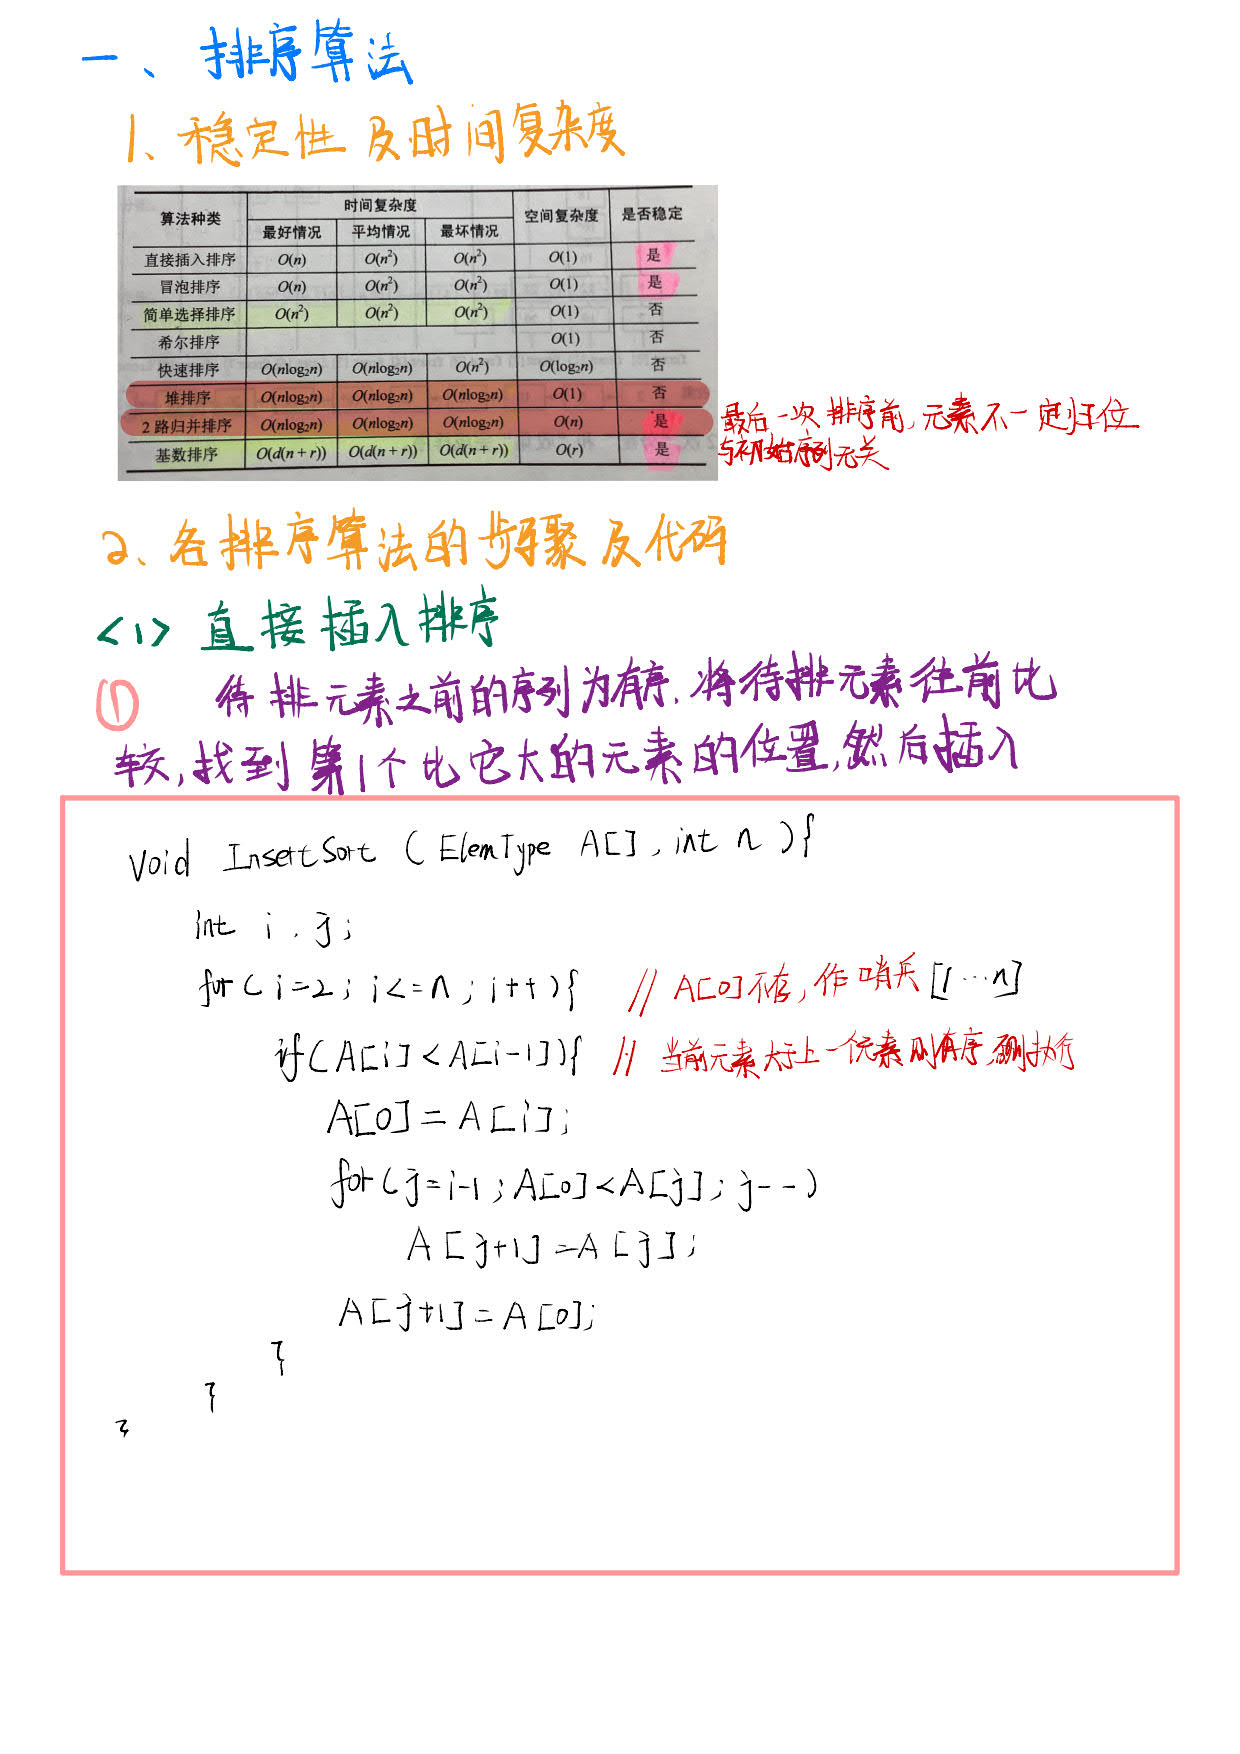 一、排序算法
1、稳定性及时间复杂度
算法种类 时间复杂度 空间复杂度 是否稳定
最好情况 平均情况 最坏情况
直接插入排序 O(n) O(n²) O(n²) O(1) 是
冒泡排序 O(n) O(n²) O(n²) O(1) 是
简单选择排序 O(n²) O(n²) O(n²) O(1) 否
希尔排序 O(1) 否
快速排序 O(nlog₂n) O(nlog₂n) O(n²) O(log₂n) 否
堆排序 O(nlog₂n) O(nlog₂n) O(nlog₂n) O(1) 否
2路归并排序 O(nlog₂n) O(nlog₂n) O(nlog₂n) O(n) 是
基数排序 O(d(n+r)) O(d(n+r)) O(d(n+r)) O(r) 是
最后一次排序前,元素不一定归位
与初始序列无关
2、各排序算法的步骤及代码
<1> 直接插入排序
① 待排元素之前的序列为有序,将待排元素往前比
较,找到第1个比它大的元素的位置,然后插入
void InsertSort (ElemType A[], int n){
int i, j;
for(i=2; i<=n; i++){ // A[0]不存,作哨兵 [1…n]
if(A[i]<A[i-1]){ // 当前元素大于上一个元素则有序,不执行
A[0]=A[i];
for(j=i-1; A[0]<A[j]; j--)
A[j+1]=A[j];
A[j+1]=A[0];
}
}
}